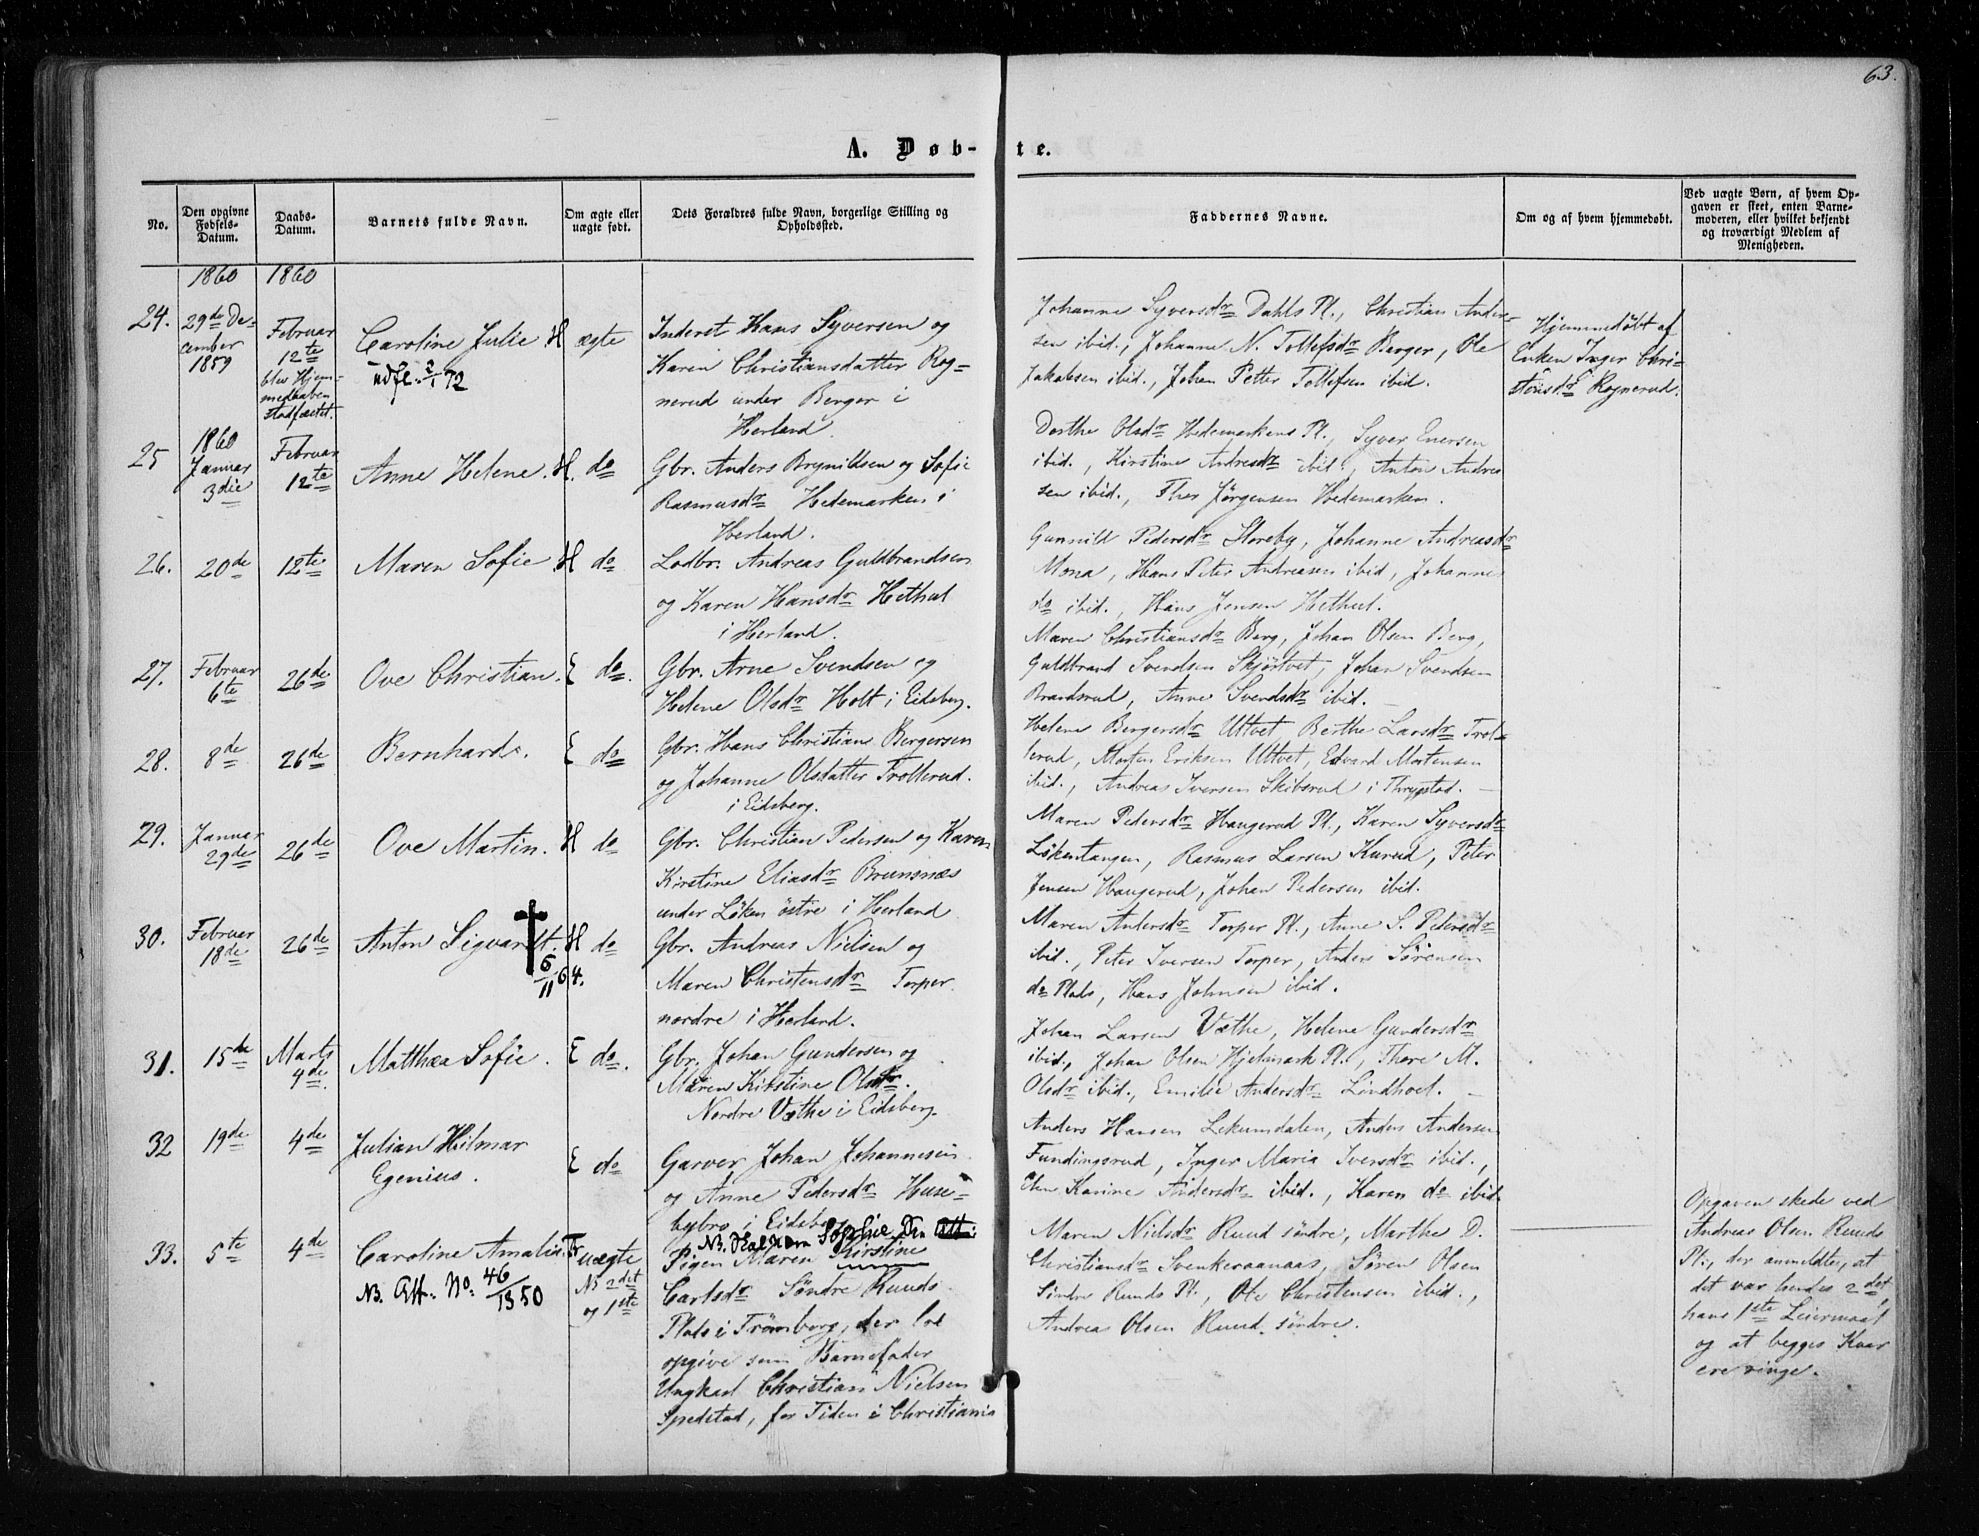 63.
A. Døb-
te.
No.
Den opgivne Fødsels-Datum.
Daabs-Datum.
Barnets fulde Navn.
Om ægte eller uægte født.
Dets Forældres fulde Navn, borgerlige Stilling og Opholdssted.
Faddernes Navne.
Om og af hvem hjemmedøbt.
Ved uægte Børn, af hvem Opgaven er skeet, enten Barnemoderen, eller hvilket bekjendt og troværdigt Medlem af Menigheden.
1860
1860
24.
29de De-
cember
1859
Februar
12te
blev Hjem-
medaaben
stadfæstet.
Caroline Julie
H
udfl. 2/1 72
ægte
Inderst Hans Syversen og
Karen Christiansdatter Rog-
nerud under Berger i
Herland.
Johanne Syversdr Dahls Pl., Christian Ander-
sen ibid., Johanne N. Tollefsdr Berger, Ole
Jakobsen ibid., Johan Petter Tollefsen ibid.
Hjemmedöbt af
Enken Inger Chri-
stensdr Rognerud.
25
1860
Januar
3die
Februar
12te
Anne Helene.
H.
do
Gbr. Anders Brynildsen og Sofie
Rasmusdr Hedemarken i
Herland.
Dorthe Olsdr Hedemarkens Pl., Syver Enersen
ibid., Kirstine Andreasdr ibid., Anton Andrea
sen ibid., Thor Jørgensen Hedemarken.
26.
20de
12te
Maren Sofie.
H
do
Lodbr. Andreas Guldbrandsen
og Karen Hansdr Hethul
i Herland.
Gunnild Pedersdr Storeby, Johanne Andreasdr
Mona, Hans Peter Andreasen ibid, Johanne
do ibid., Hans Jensen Hethul.
27.
Februar
6te
26de
Ove Christian.
E
do.
Gbr. Arne Svendsen og
Helene Olsdr Holt i Eidsberg.
Maren Christiansdr Berg, Johan Olsen Berg,
Guldbrand Svendsen Skjørtvet, Johan Svendsen
Brandsrud, Anne Svendsdr ibid.
28.
8de
26de
Bernhard.
E
do
Gbr. Hans Christian Bergersen
og Johanne Olsdatter Trollerud.
i Eidsberg.
Helene Bergersdr Uttvet, Berthe Larsdr Trol-
lerud, Morten Eriksen Uttvet, Edvard Mortensen
ibid., Andreas Iversen Skibsrud i Thrygstad.
29.
Januar
29de
26de
Ove Martin.
H
do
Gbr. Christian Pedersen og Karen
Kirstine Eliasdr Brunsnæs
under Løken östre i Herland
Maren Pedersdr Haugerud Pl., Karen Syversdr
Løkentangen, Rasmus Larsen Kurud, Peter
Jensen Haugerud, Johan Pedersen ibid.
30.
Februar
18de
26de
Anton Sigvardt.
H
6/11 64.
do
Gbr. Andreas Nielsen og
Maren Christensdr Torper
nordre i Herland.
Maren Andersdr Torper Pl., Anne S. Pedersdr
ibid., Peter Iversen Torper, Anders Sörensen
do Plads, Hans Johnsen ibid.
31.
15de
Marts
4de
Matthæa Sofie.
E
do.
Gbr. Johan Gundersen og
Maren Kirstine Olsdr.
Nordre Væthe i Eidsberg.
Johan Larsen Væthe, Helene Gundersdr
ibid., Johan Olsen Hjelmark Pl., Thore M.
Olsdr ibid., Emilie Andersdr Lindhoel.
32
19de
4de
Julian Hilmar
Egenius.
E
do
Garver Johan Johannesen
og Anne Pedersdr Huse-
bybro i Eidsberg
Anders Hansen Lekumdalen, Anders Andersen
Fundingsrud, Inger Maria Iversdr ibid.,
Karine Andersdr ibid., Karen do ibid.
33.
5te
4de
Caroline Amalie.
Tr
NB. Att. No. 46/1350
uægte
NB 2det
og 1ste
NB. Skal være Sophie
Pigen Maren Kirstine
Carlsdr Søndre Ruuds
Plads i Trømborg, der lod
opgive som Barnefader
Ungkarl Christian Nielsen
Spedstad, for Tiden i Christiania
Maren Nielsdr Ruud söndre, Marthe D.
Christiansdr Svenkeraanaas, Sören Olsen
Söndre Ruuds Pl., Ole Christensen ibid.,
Andrea Olsen Ruud söndre.
Opgaven skede ved
Andreas Olsen Ruuds
Pl., der anmeldte, at
det var hendes 2det,
hans 1ste Leiermaal
og at begges Kaar
ere ringe.